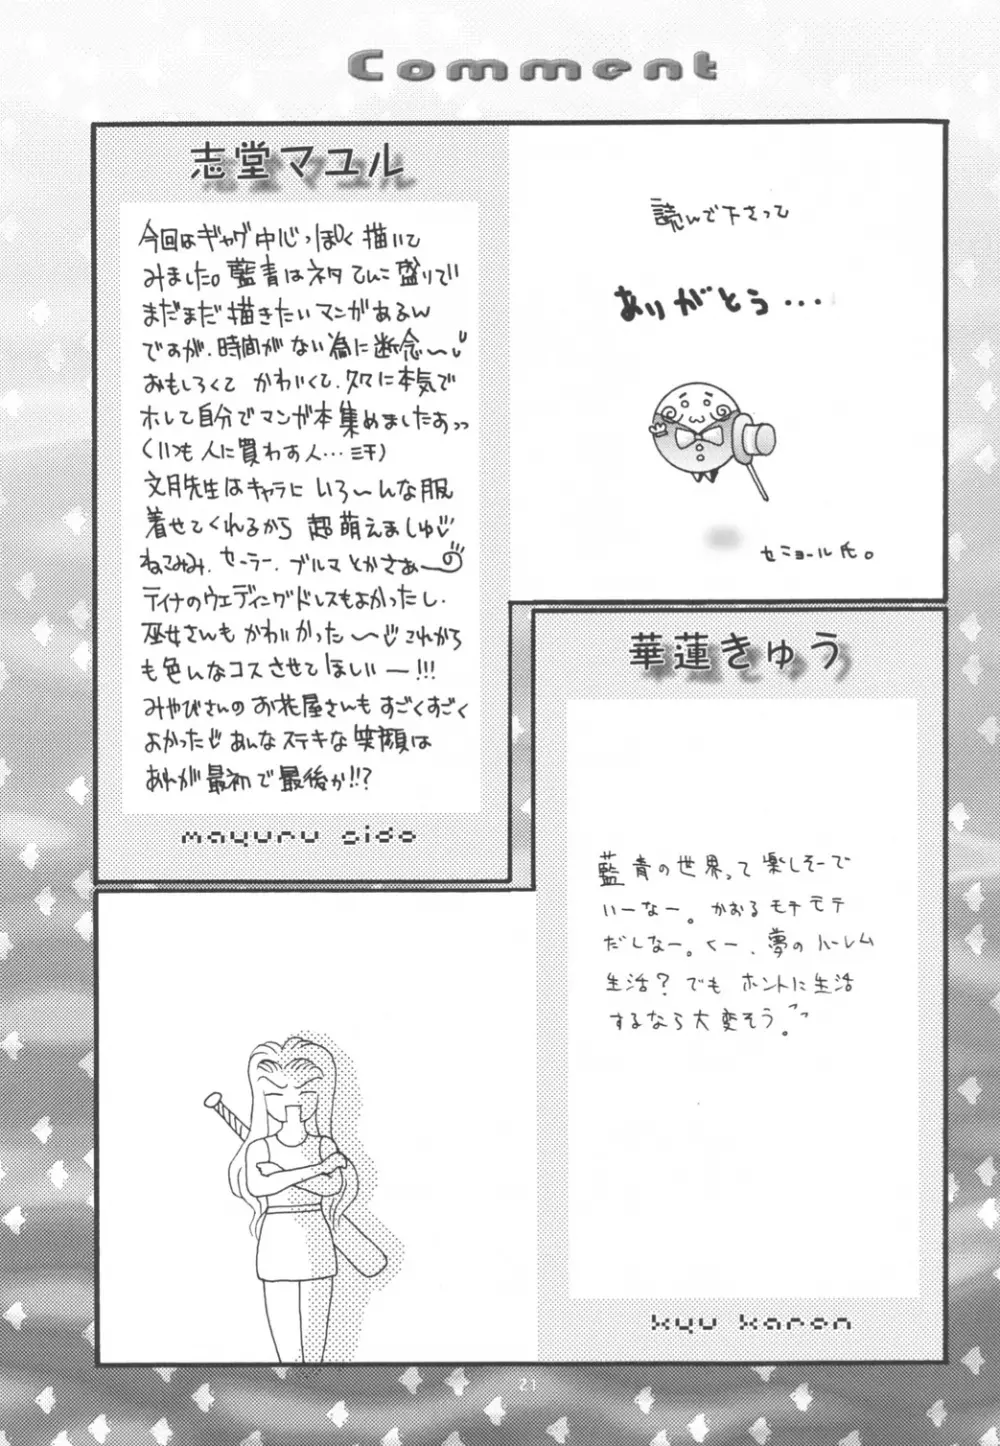 Comment
志堂マユル
今回はギャグ中心っぽく描いて
みました。藍青はネタてんこ盛りで
まだまだ描きたいマンガあるん
ですが、時間がない為に断念〜
おもしろくて かわいくて、久々に本気で
ホレて自分でマンガ本集めましたおっっ
(いつも人に買わす人…ミ汗)
文月先生はキャラに いろ〜んな服
着せてくれるから 超萌えましゅ
ねこみみ、セーラー、ブルマ とかさぁ〜
ティナのウェディングドレスもよかったし、
巫女さんも かわいかった〜 これから
も色んなコスさせてほしいー!!!
みやびさんの お花屋さんも すごくすごく
よかった あんなステキな笑顔は
あれが最初で最後か!!?
mayuru sido
読んで下さって
ありがとう...
セミョール氏。
華蓮きゅう
藍青の世界って 楽しそーで
いーなー。かおるモテモテ
だしなー。くー、夢のハーレム
生活? でも ホントに生活
するなら大変そう。
kyu karen
21